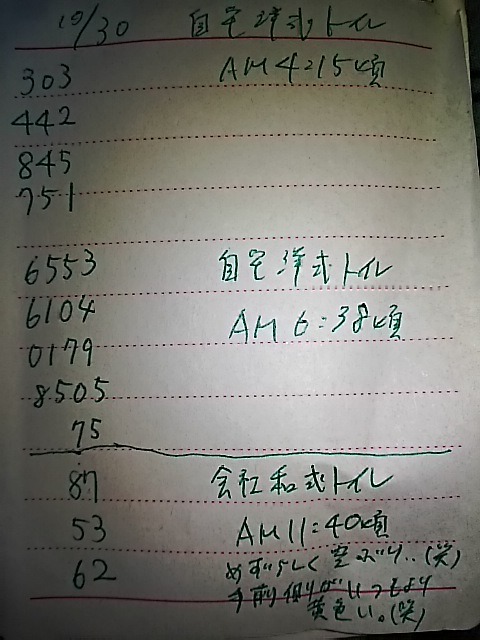 10/30 自宅洋式トイレ
303 AM4:15頃
442
845
751
6553 自宅洋式トイレ
6104
AM6:38頃
0179
8505
75
87 会社和式トイレ
53 AM11:40頃
62 めずらしく空ぶり..(笑)
手前側がいつもより
黄色い。(笑)